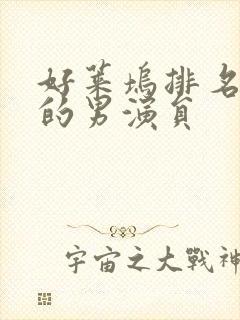 好莱坞排名
的男演员
宇宙之大戰神